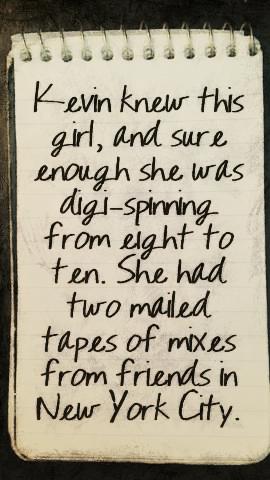 Kevin knew this
girl, and sure
enough she was
digi-spinning
from eight to
ten. She had
two mailed
tapes of mixes
from friends in
New York City.